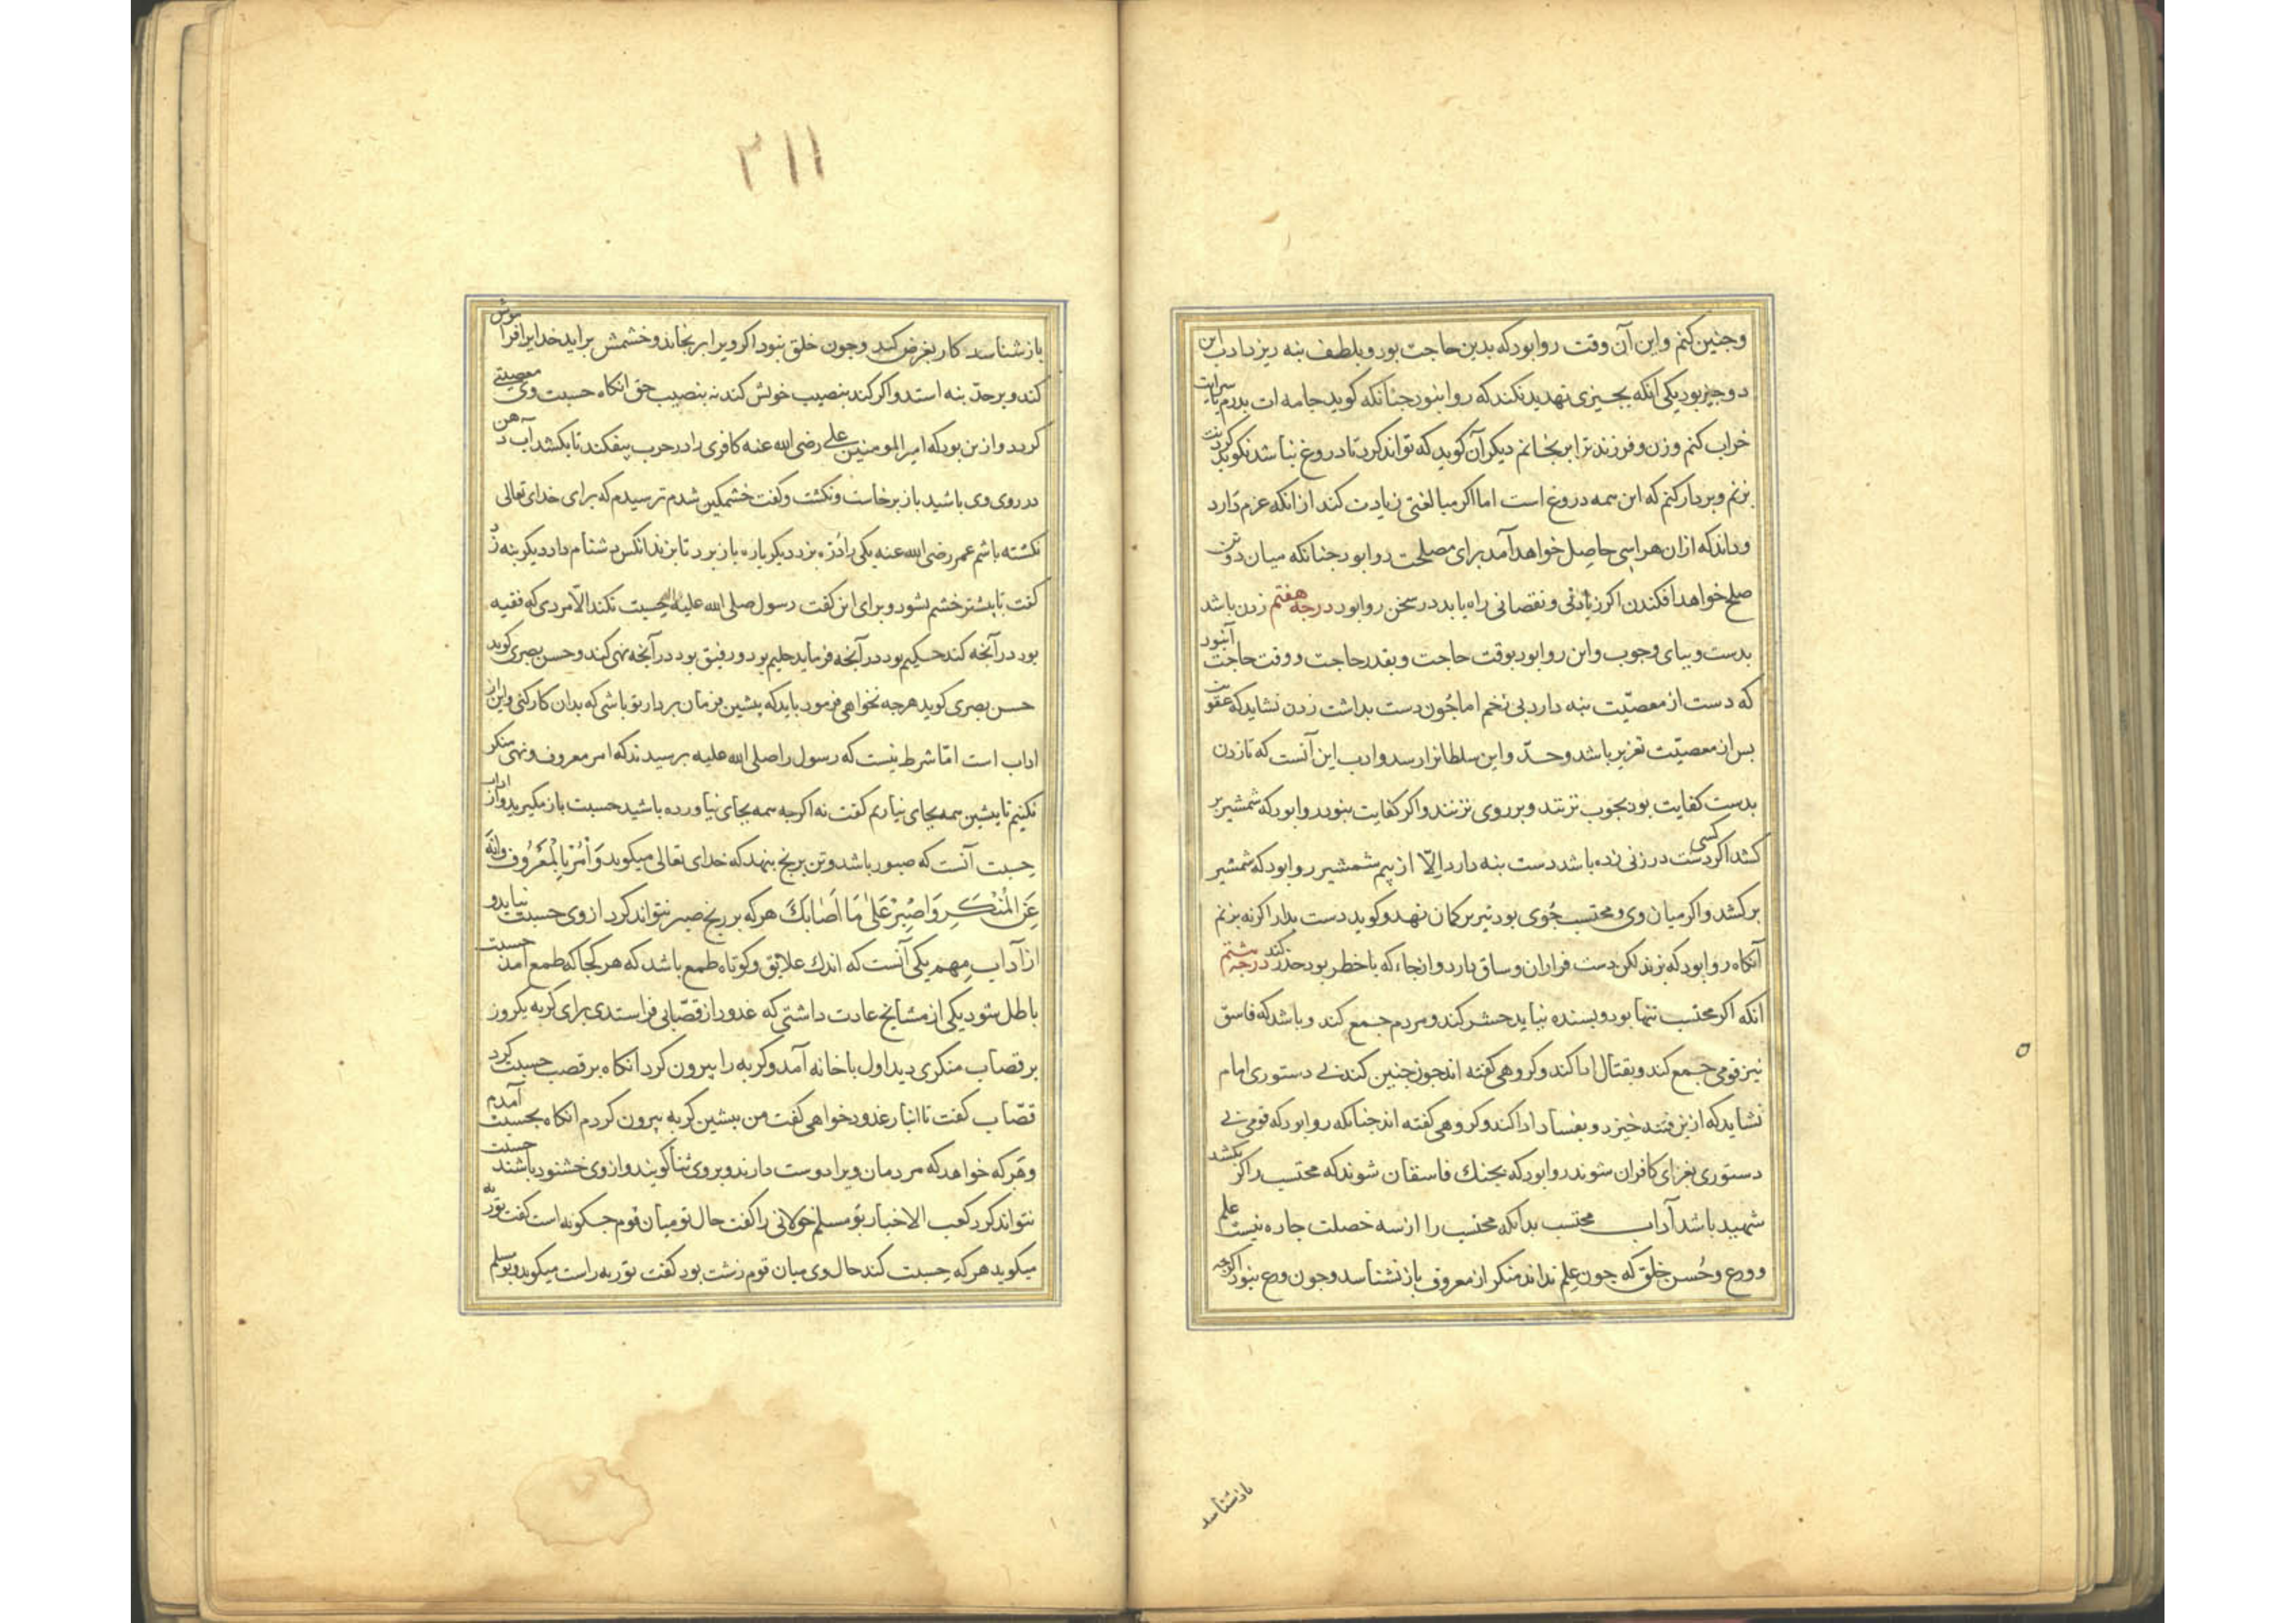 وجنین کنم واین آن وقت روا بود که بدین حاجت بود وبلطف بنه ریزد ادب این
دو جیز بود یکی آنکه بجیزی تهدید نکند که روا نبود جنانکه کوید جامه ات بدرم سرایت
خراب کنم وزن وفرزند ترا برنجانم دیکر آن کوید که تواند کرد تا دروغ نباشد نکوید کردنت
بزنم وبردار کنم که این همه دروغ است اما اکر مبالغتی زیادت کند از انکه عزم دارد
وداند که ازان هراسی حاصل خواهد آمد برای مصلحت روا بود جنانکه میان دو تن
صلح خواهد افکندن اکر زیادتی ونقصانی راه یابد در سخن روا بود درجه هفتم زدن باشد
بدست وبپای وجوب واین روا بود بوقت حاجت وبقدر حاجت ووقت حاجت آنبود
که دست از معصیّت بنه دارد بی زخم اما جُون دست بداشت زدن نشاید که عقوبت
بس از معصیّت تعزیر باشد وحدّ واین سلطانرا رسد وادب این آنست که تا زدن
بدست کفایت بود بجوب نزنند وبر روی نزنند واکر کفایت نبود روا بود که شمشیر بر
کشد اکر کسی دست در زنی زده باشد دست بنه دارد الّا از بیم شمشیر روا بود که شمشیر
برکشد واکر میان وی ومحتسب جُوی بود تیر بر کمان نهد وکوید دست بدار اکر نه بزنم
آنکاه روا بود که بزند لکن دست فراران وساق دارد وازنجاء که با خطر بود حذر کند درجه هشتم
انکه اکر محتسب تنها بود وبسنده نیاید حشر کند ومردم جمع کند وباشد که فاسق
نیز قومی جمع کند وبقتال ادا کند وکروهی کفته اند جون جنین کند بی دستوری امام
نشاید که ازین فتنه خیزد وبفساد ادا کند وکروهی کفته اند جنانکه روا بود که قومی بی
دستوری بغزای کافران شوند روا بود که بجنك فاسقان شوند که محتسب را کر بکشد
شهید باشد آداب محتسب بدانکه محتسب را از سه خصلت جاره نیست علم
وورع وحُسن خلق که جون علم نداند منکر از معروف باز نشناسد وجون ورع نبود اکرجه
بازشناسد
۲۱۱
بازشناسد کار بغرض کند وجون خلق نبود اکر ویرا برنجاند وخشمش براید خدایرا فراموش
کند وبر حدّ بنه استد واکر کند بنصیب خویش کند نه بنصیب حق انکاه حسبت وی معصیتی
کردد وازین بود که امیر المومنین علی رضی الله عنه کافری را در حرب بیفکند تا بکشد آب دهن
در روی وی باشید باز برخاست ونکشت وکفت خشمکین شدم ترسیدم که برای خدای تعالی
نکشته باشم عمر رضی الله عنه یکی را دُرّه بزد دیکر باره باز برد تا بزند انکس دشنام داد دیکر بنه زد
کفت تا بیشتر خشم نشود وبرای این کفت رسول صلی الله علیه حسبت نکند الّا مردی که فقیه
بود در آنجه کند حکیم بود در آنجه فرماید حلیم بود ورفیق بود در آنجه نهی کند وحسن بصری کوید
حسن بصری کوید هرجه نخواهی فرمود باید که بیشین فرمان بردار تو باشی که بدان کار کنی واین از
اداب است امّا شرط نیست که رسول را صلی الله علیه برسیدند که امر معروف ونهی منکر
نکنیم تا بیشین همه بجای نیاریم کفت نه اکرجه همه بجای نیاورده باشید حسبت باز مکیرید واز اداب
حِسبت آنست که صبور باشد وتن برنج بنهد که خدای تعالی میکوید وَأْمُرْ بِالْمَعْرُوفِ وَانْهَ
عَنِ الْمُنْكَرِ وَاصْبِرْ عَلَىٰ مَا أَصَابَكَ هر که بر رنج صبر نتواند کرد از وی حسبت نیاید و
از آداب مِهم یکی آنست که اندك علائق وکوتاه طمع باشد که هر کجا که طمع آمد حسبت
باطل شود یکی از مشایخ عادت داشتی که غدود از قصّابی فراستدی برای کربه یکروز
بر قصاب منکری دید اول با خانه آمد وکربه را بیرون کرد انکاه بر قصب حسبت کرد
قصّاب کفت تا انبار غدود خواهی کفت من بیشین کربه بیرون کردم انکاه بحسبت آمدم
وهر که خواهد که مردمان ویرا دوست دارند وبروی ثنا کویند واز وی خشنود باشند حسبت
نتواند کرد کعب الاخبار بو مسلم خولانی را کفت حال تو میان قوم جکونه است کفت توریه
میکوید هر که حِسبت کند حال وی میان قوم زشت بود کفت توریه راست میکوید وبو مسلم